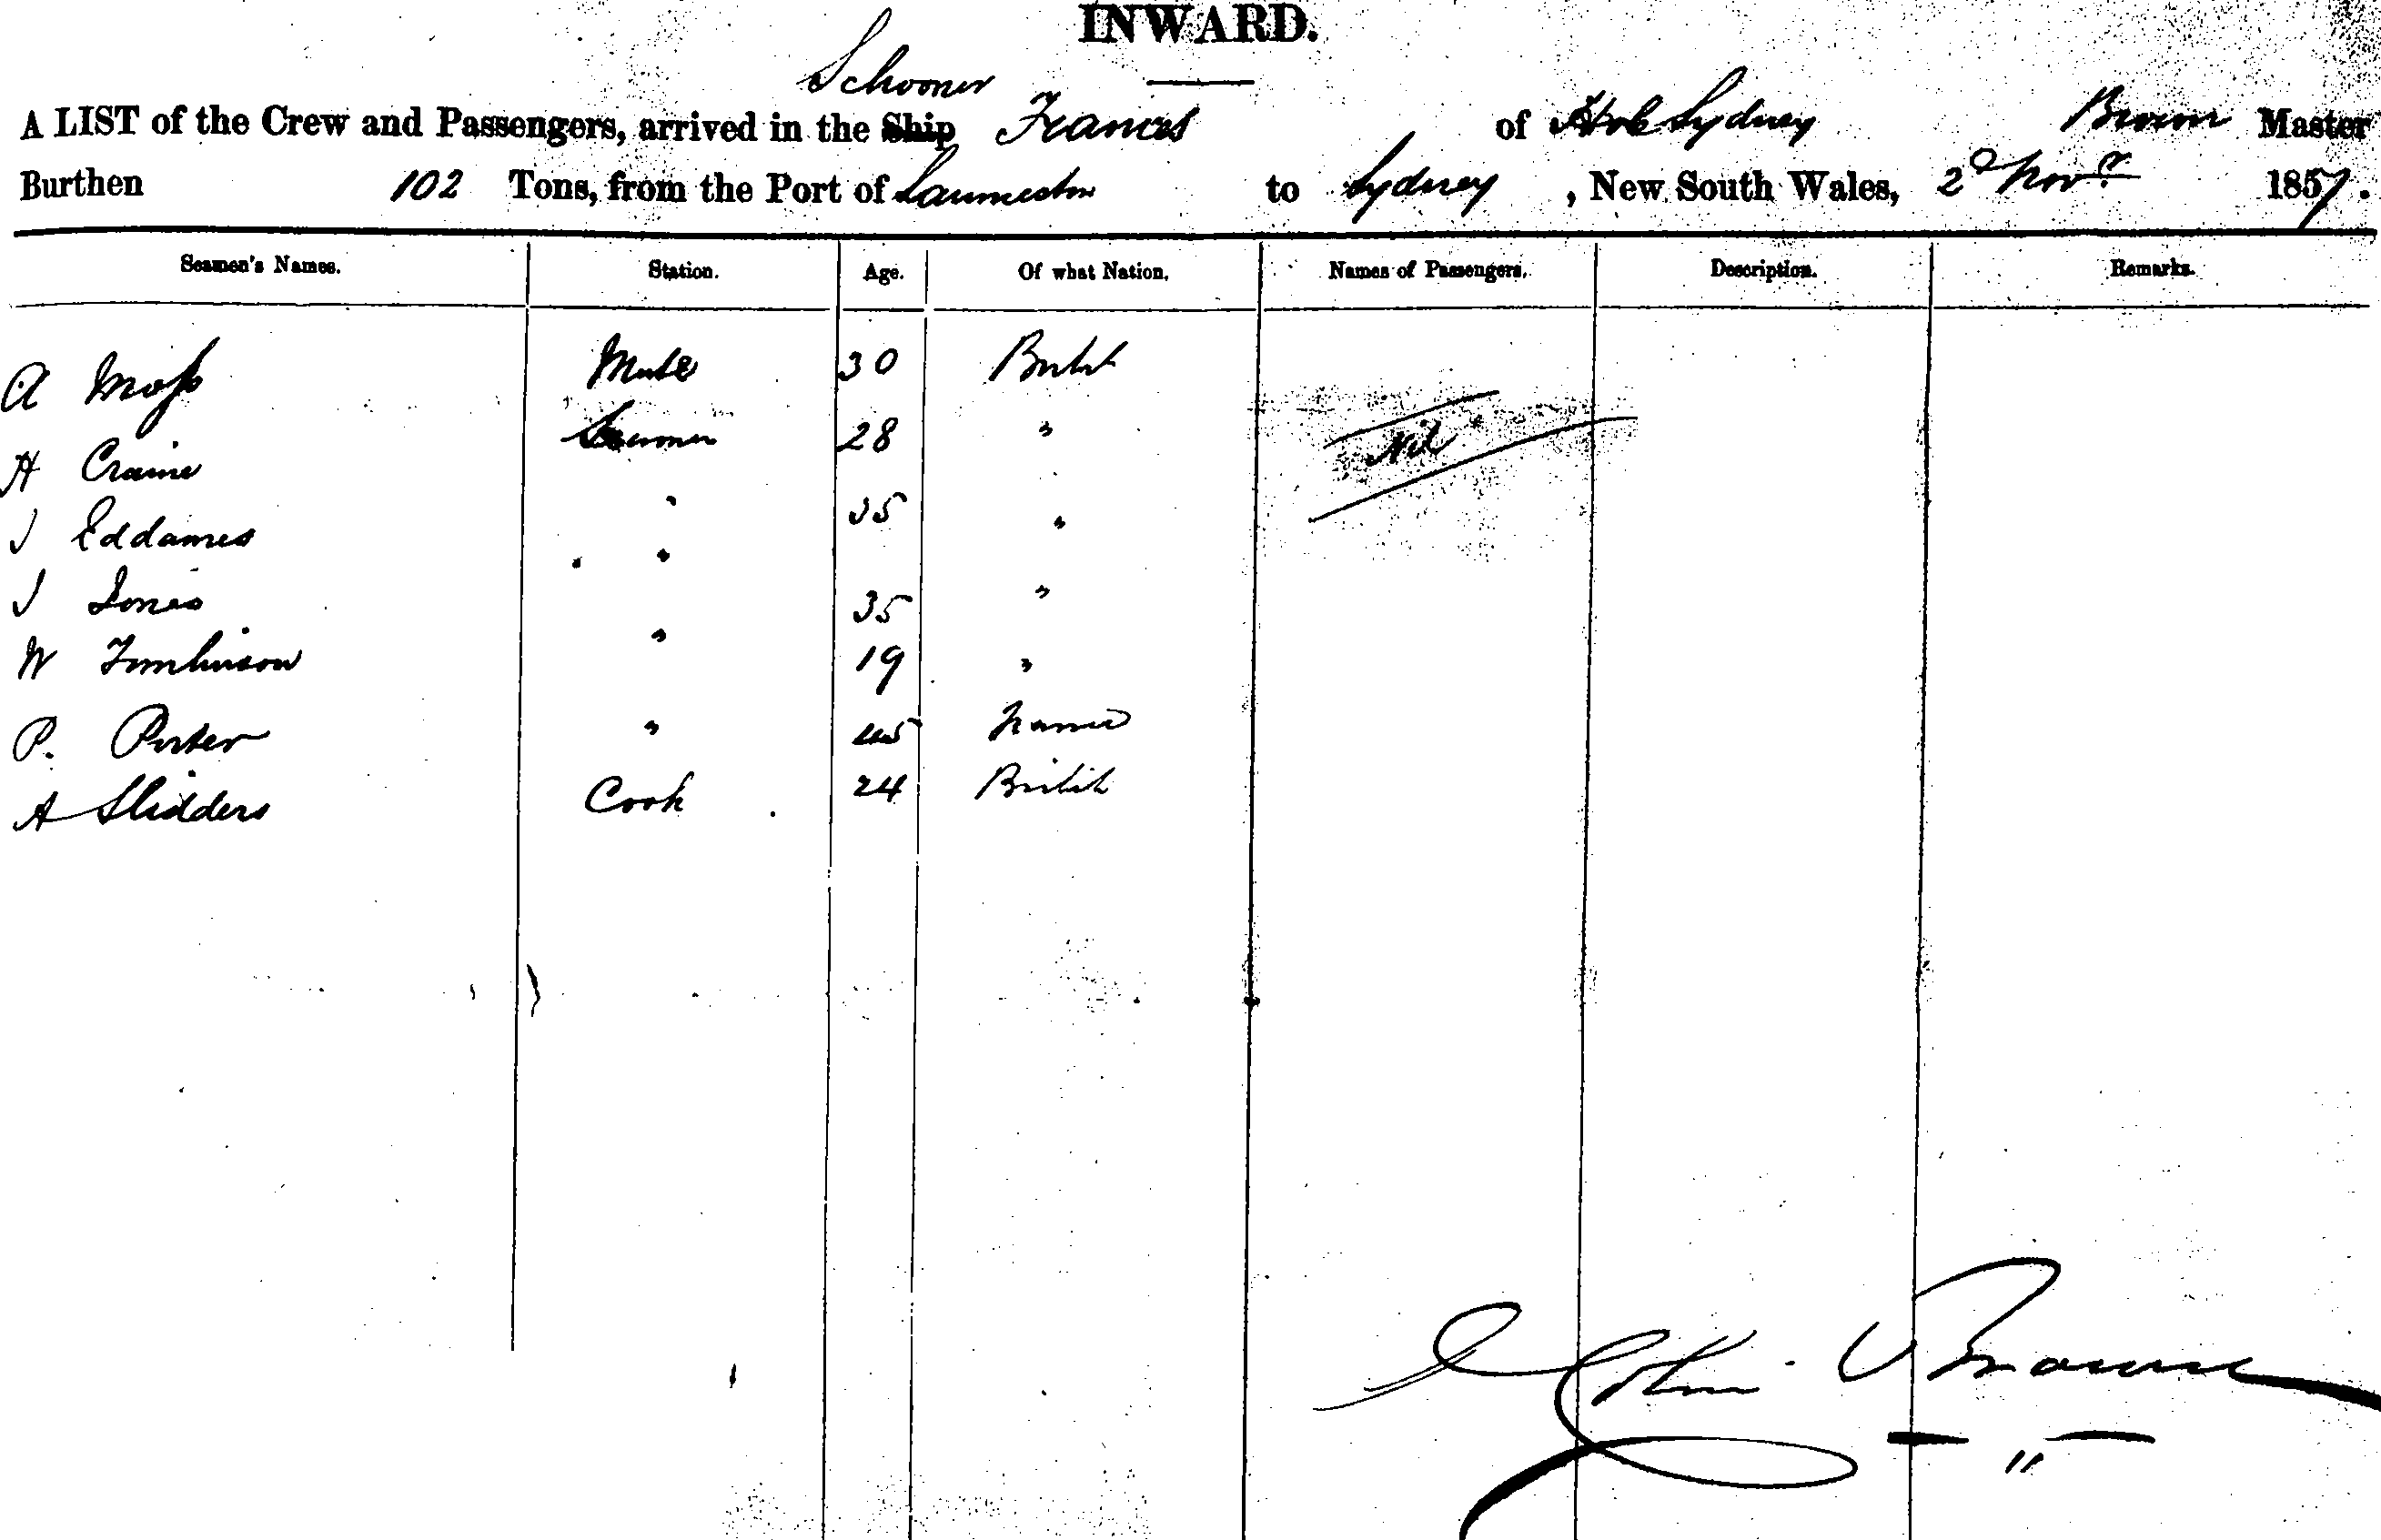 INWARD.
Schooner
A LIST of the Crew and Passengers, arrived in the Ship Frances of Sydney Brown Master
Burthen 102 Tons, from the Port of Launceston to Sydney, New South Wales, 2d Novr. 1857.
Seamen's Names. Station. Age. Of what Nation. Names of Passengers. Description. Remarks.
A Moss Mate 30 British
H Craine Seaman 28 " Nil
J Eddames " 35 "
J Jones " 35 "
W Tomlinson " 19 "
P. Porter " 45 France
A Slidders Cook 24 British
John Browne